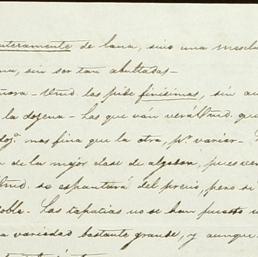 enteramente de lana, sino una mezcla
na, sin ser tan abultadas—
ñora— Vmd las pide finisimas, sin au
la docena— Las que ván verá Vmd. que
mas fina que la otra, pa. variar—
de la mejor clase de algodon, pues ve
Vmd. se espantará del precio, pero si
doble. Las tapacias no se han puesto
a variedad bastante grande, y aunque